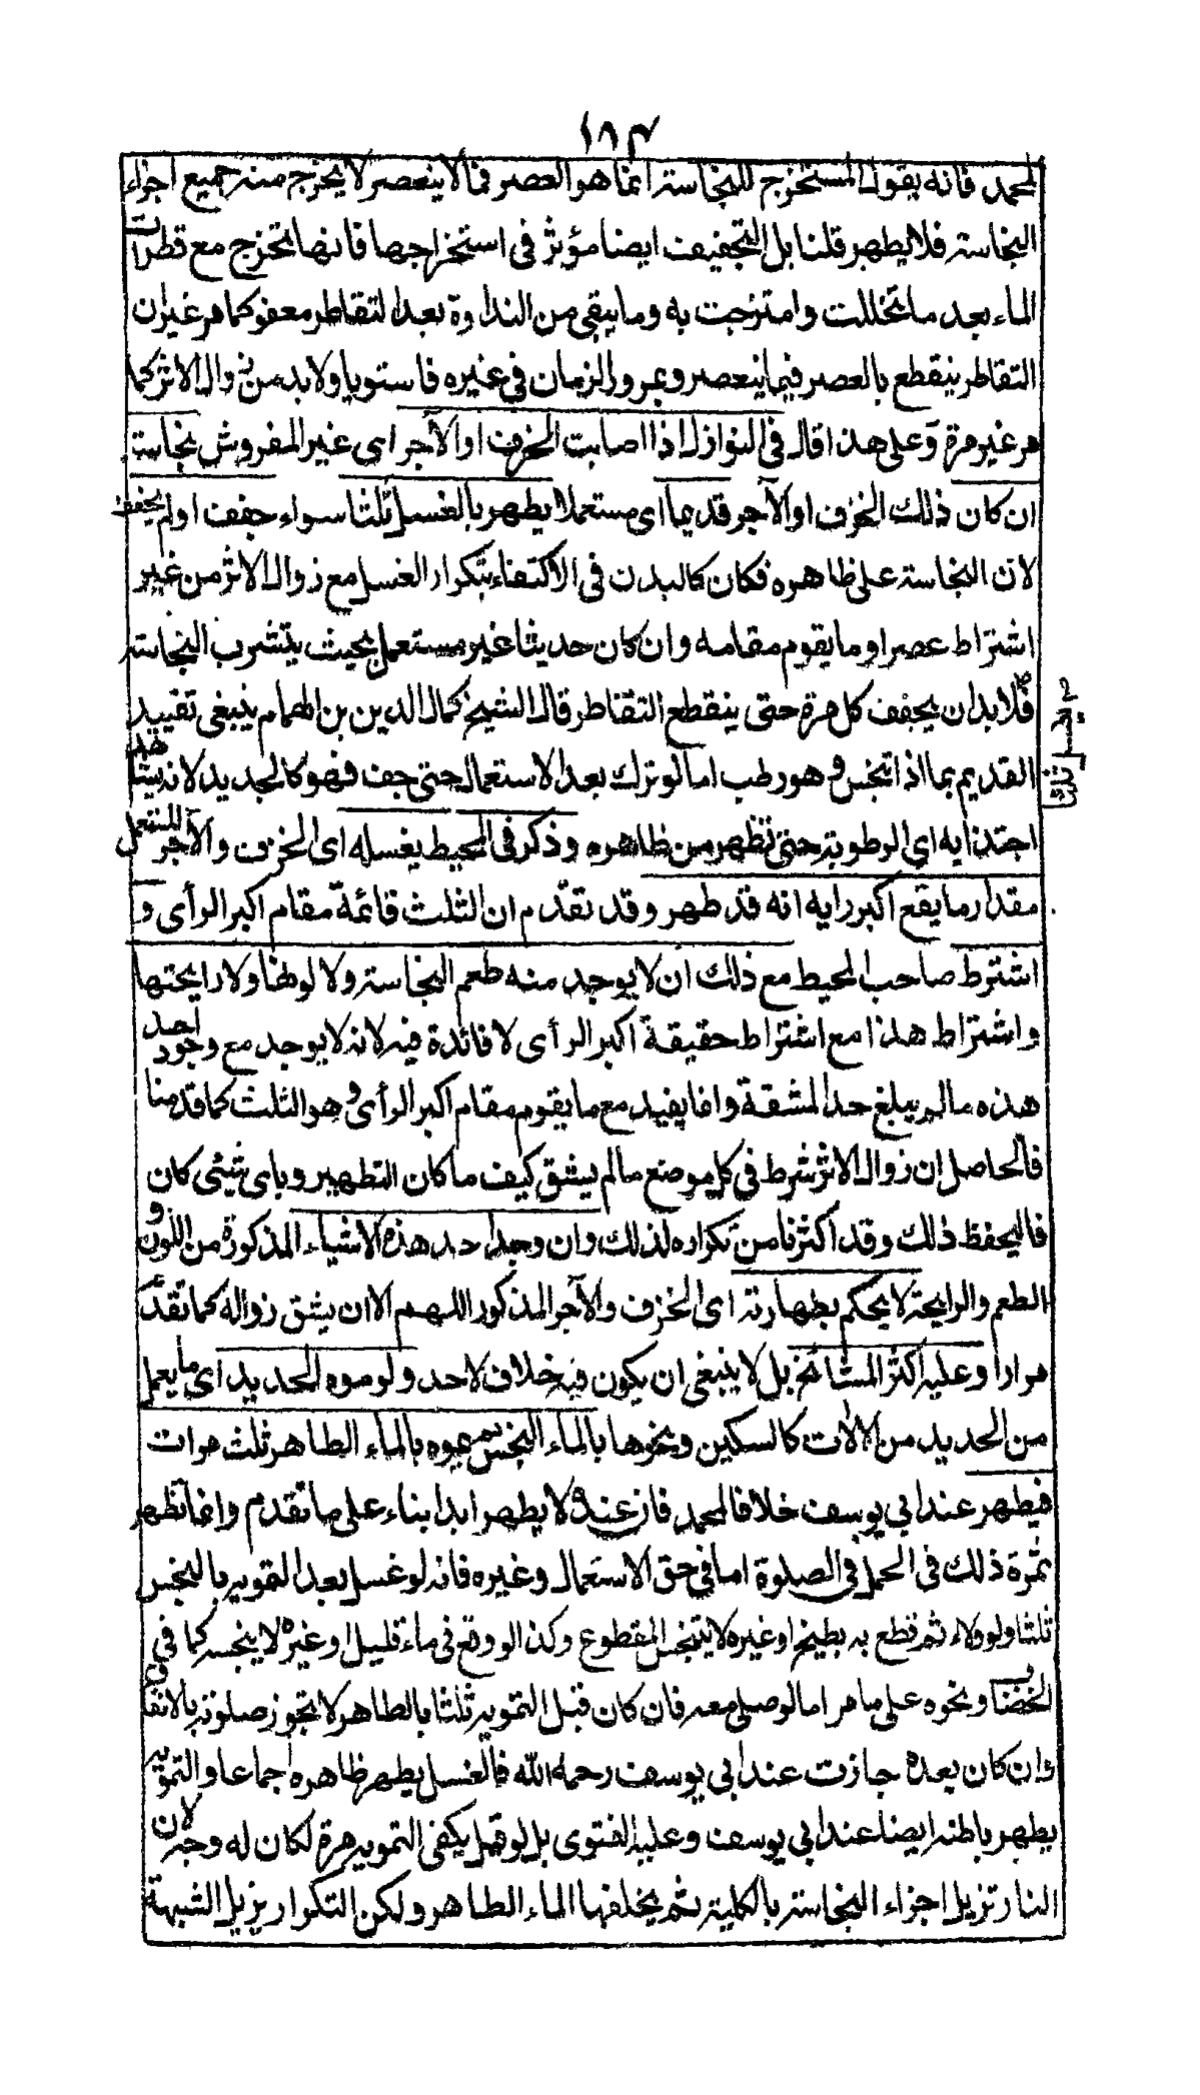 ١٨٤
لمحمد فانه يقول المستخرج للنجاسة انما هو العصر فمالا ينعصر لا يخرج منه جميع اجزاء
النجاسة فلا يطهر قلنا بل التجفيف ايضا مؤثر فى استخراجها فانها تخرج مع قطرات
الماء بعد ما تخللت وامتزجت به وما يبقى من النداوة بعد التقاطر معفو كما مر غير ان
التقاطر ينقطع بالعصر فيما ينعصر وبمرور الزمان فى غيره فاستويا ولا بد من زوال الاثر كما
مر غير مرة وعلى هذا قال فى النوازل اذا اصابت الخزف او الآجر اى غير المفروش نجاسة
ان كان ذلك الخزف او الآجر قديما اى مستعملا يطهر بالغسل ثلثا سواء جفف او لم يجفف
لان النجاسة على ظاهره فكان كالبدن فى الاكتفاء بتكرار الغسل مع زوال الاثر من غير
اشتراط عصر او ما يقوم مقامه وان كان حديثا غير مستعمل بحيث يتشرب النجاسة
فلا بد ان يجفف كل مرة حتى ينقطع التقاطر قال الشيخ كمال الدين بن الهمام ينبغى تقييد
القديم بما اذا تنجس وهو رطب اما لو ترك بعد الاستعمال حتى جف فهو كالجديد لانه يشاهد
اجتذابه اى الرطوبة حتى تظهر من ظاهره وذكر فى المحيط يغسله اى الخزف والآجر المستعمل
مقدار ما يقع اكبر رايه انه قد طهر وقد تقدم ان الثلث قائمة مقام اكبر الرأى و
اشترط صاحب المحيط مع ذلك ان لا يوجد منه طعم النجاسة ولا لونها ولا رايحتها
واشتراط هذا مع اشتراط حقيقة اكبر الرأى لا فائدة فيه لانه لا يوجد مع وجود احد
هذه مالم يبلغ حد المشقة وانما يفيد مع ما يقوم مقام اكبر الرأى وهو الثلث كما قدمنا
فالحاصل ان زوال الاثر شرط فى كل موضع مالم يشق كيف ما كان التطهير وباى شئى كان
فاليحفظ ذلك وقد اكثرنا من تكراره لذلك وان وجد احد هذه الاشياء المذكورة من اللون و
الطعم والرايحة لا يحكم بطهارته اى الخزف والآجر المذكور اللهم الا ان يشق زواله كما تقدم
مرارا وعليه اكثر المشائخ بل لا ينبغى ان يكون فيه خلاف لاحد ولو موه الحديد اى ما يعمل
من الحديد من الالات كالسكين ونحوها بالماء النجس ثم يموه بالماء الطاهر ثلث مرات
فيطهر عند ابى يوسف خلافا لمحمد فان عنده لا يطهر ابدا بناء على ما تقدم وانما تظهر
ثمرة ذلك فى الحمل فى الصلوة اما فى حق الاستعمال وغيره فانه لو غسل بعد التمويه بالنجس
ثلثا ولو ولاء ثم قطع به بطيخ او غيره لا يتنجس المقطوع وكذا لو وقع فى ماء قليل او غيره لا ينجسه كما فى
الخضاب ونحوه على ما مر اما لو صلى معه فان كان قبل التمويه ثلثا بالطاهر لا تجوز صلوته بالاتفاق
وان كان بعده جازت عند ابى يوسف رحمه الله فالغسل يطهر ظاهره اجماعا والتمويه
يطهر باطنه ايضا عند ابى يوسف وعليه الفتوى بل لو قيل يكفى التمويه مرة لكان له وجه لان
النار تزيل اجزاء النجاسة بالكلية ثم يخلفها الماء الطاهر ولكن التكرار يزيل الشبهة